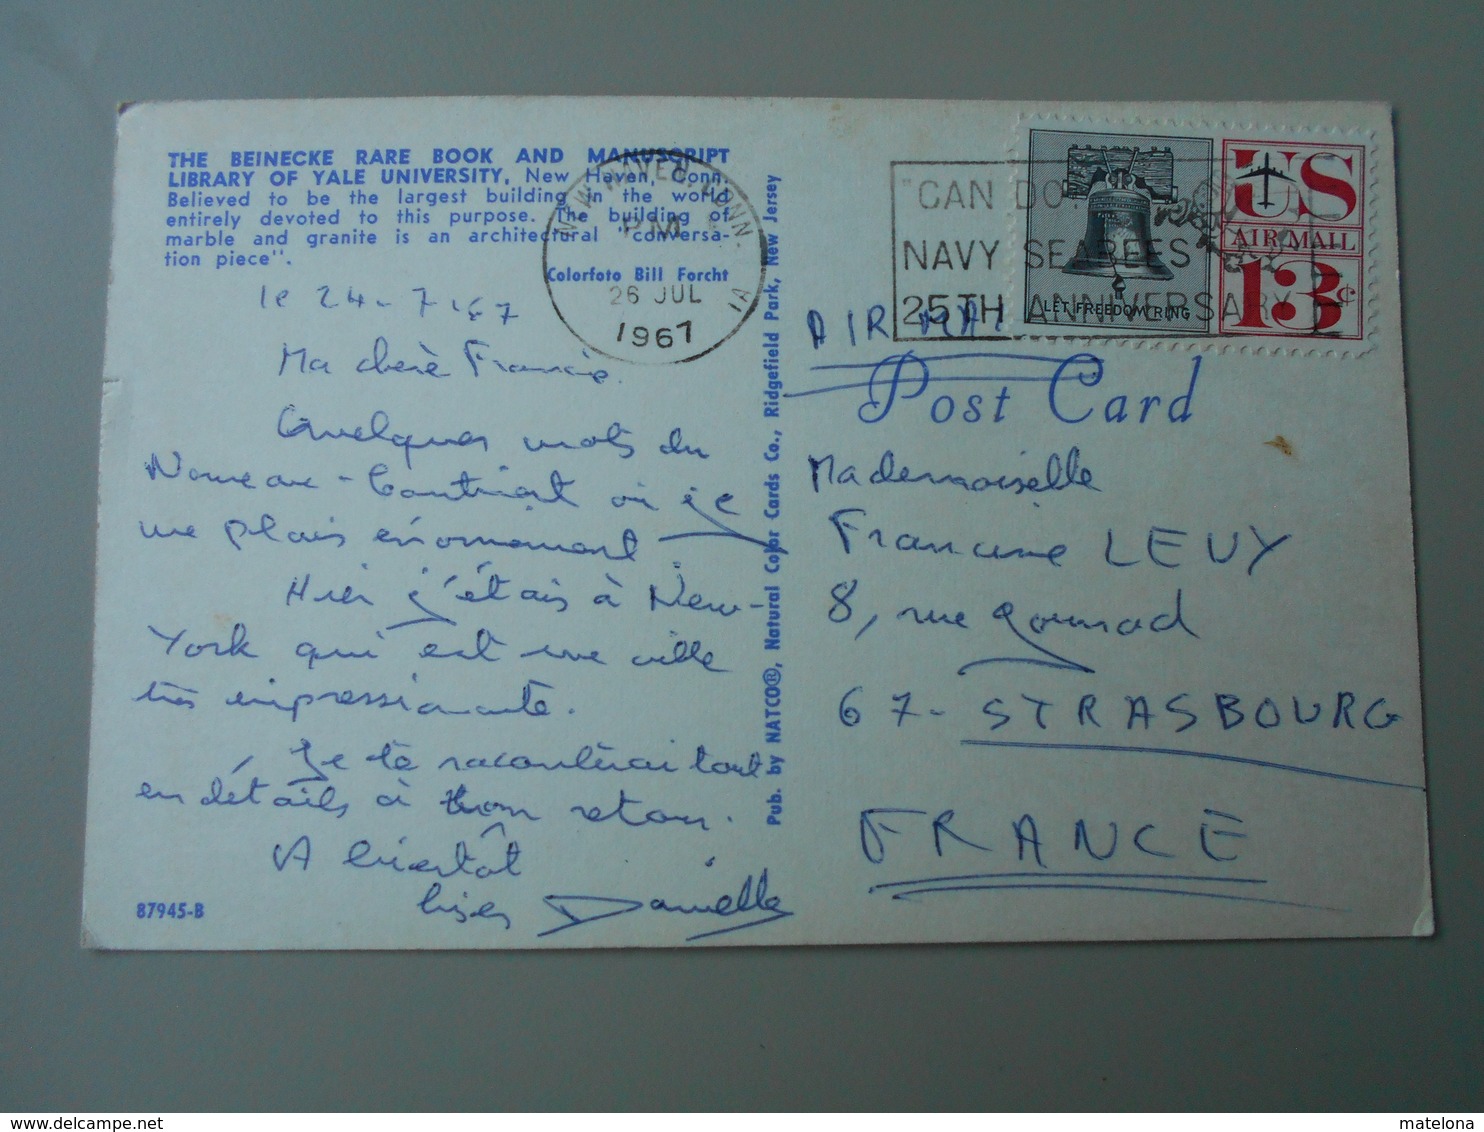 THE BEINECKE RARE BOOK AND MANUSCRIPT
LIBRARY OF YALE UNIVERSITY, New Haven, Conn.
Believed to be the largest building in the world
entirely devoted to this purpose. The building of
marble and granite is an architectural "conversa-
tion piece".
Colorfoto Bill Forcht
le 24-7-67
Ma chère Francine.
Quelques mots du
Nouveau-Continent où je
me plais énormément.
Hier j'étais à New-
York qui est une ville
très impressionante.
Je te raconterai tout
en détails à mon retour.
A bientôt
bises Danielle
87945-B
Pub. by NATCO®, Natural Color Cards Co., Ridgefield Park, New Jersey
NEW HAVEN, CONN.
PM
26 JUL
1967
1A
"CAN DO"
NAVY SEABEES
25TH ANNIVERSARY
LET FREEDOM RING
US
AIR MAIL
13¢
AIR MAIL
Post Card
Mademoiselle
Francine LEVY
8, rue Gounod
67- STRASBOURG
FRANCE
matelona